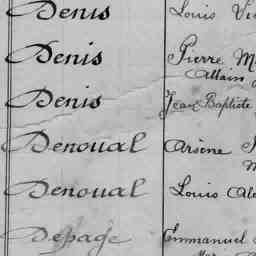 Denis Louis
Denis Pierre
Allain
Denis Jean Baptiste
Denoual Arsène
Denoual Louis
Depage Emmanuel